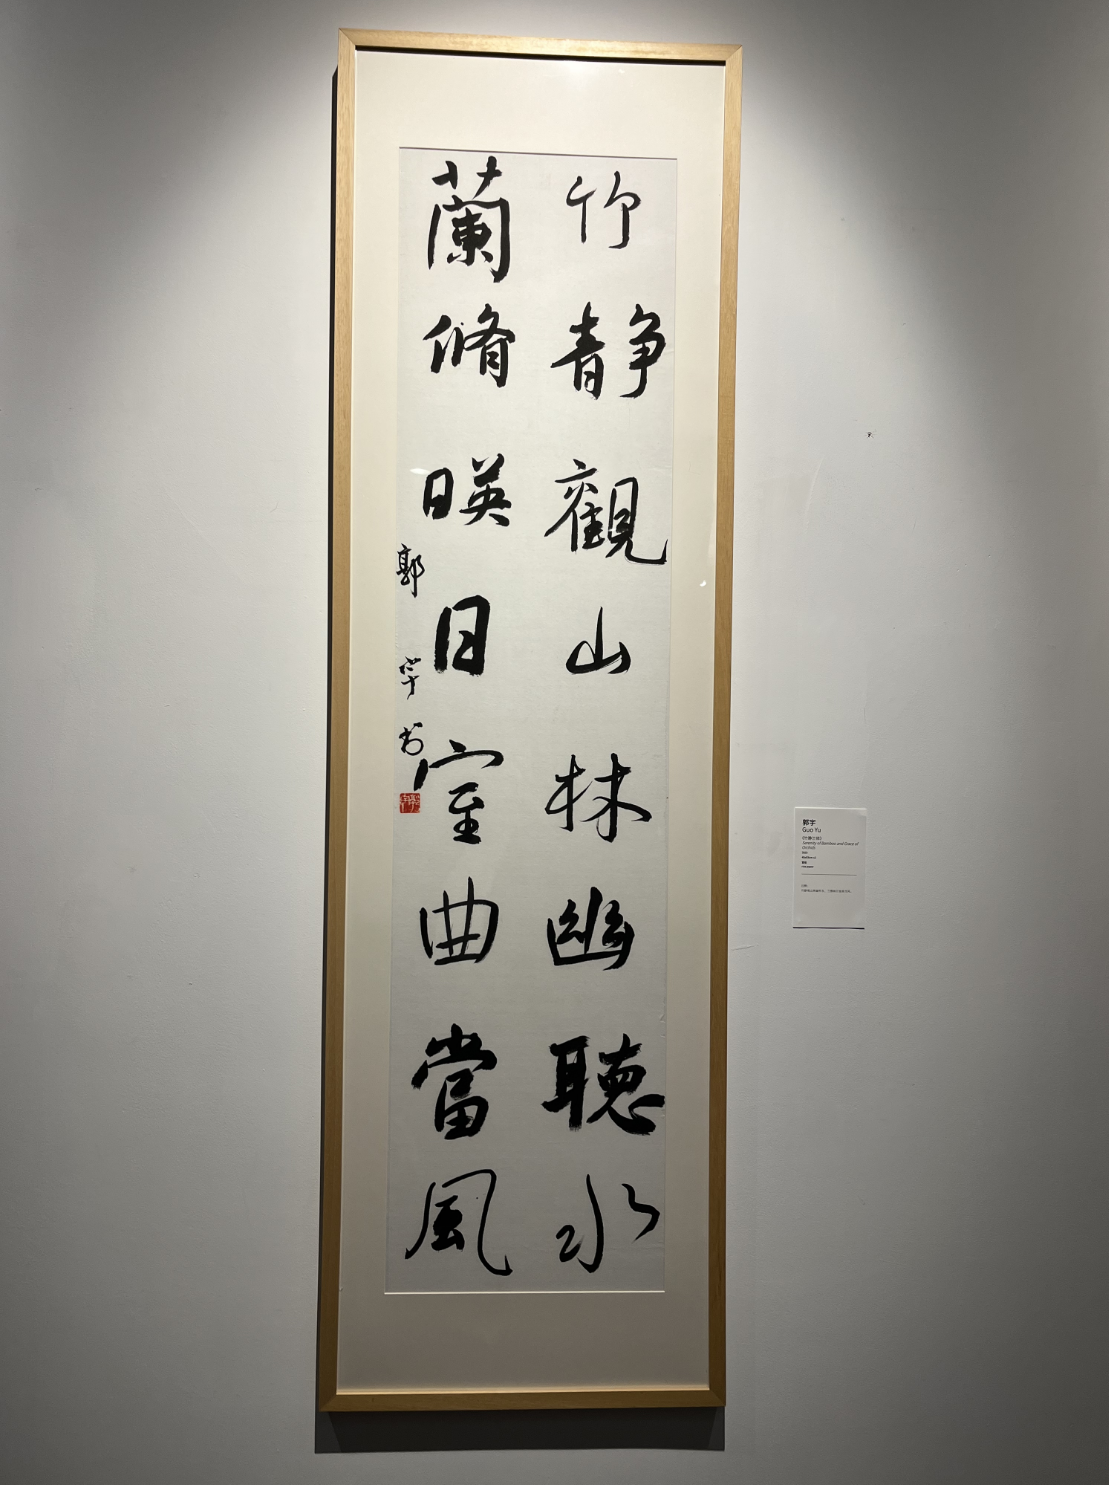 竹静觀山林幽聴水
蘭脩暎日室曲當風
郭宇书
郭宇
Guo Yu
Serenity of Bamboo and Grace of
Orchid